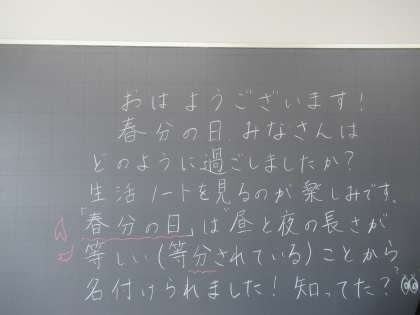 おはようございます！
春分の日、みなさんは
どのように過ごしましたか？
生活ノートを見るのが楽しみです。
「春分の日」は昼と夜の長さが
等しい(等分されている)ことから
名付けられました！知ってた？